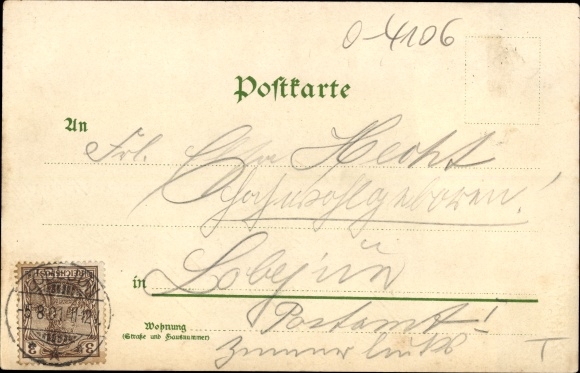 0-4106
Postkarte
An
Frl. Elsa Hecht
Hochwohlgeboren!
in Löbejün
Postamt!
Wohnung
(Straße und Hausnummer)
Zimmer links
T
3 3